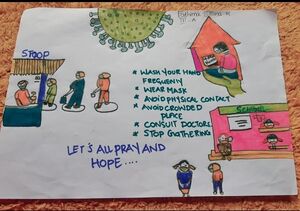 STOOP
* WASH YOUR HAND
FREQUENLY
* WEAR MASK
* AVOID PHYSICAL CONTACT
* AVOID CROWDED
PLACE
* CONSUIT DOCTORS
* STOP GATHERING
SCHOOL
LET'S ALL PRAY AND
HOPE ....